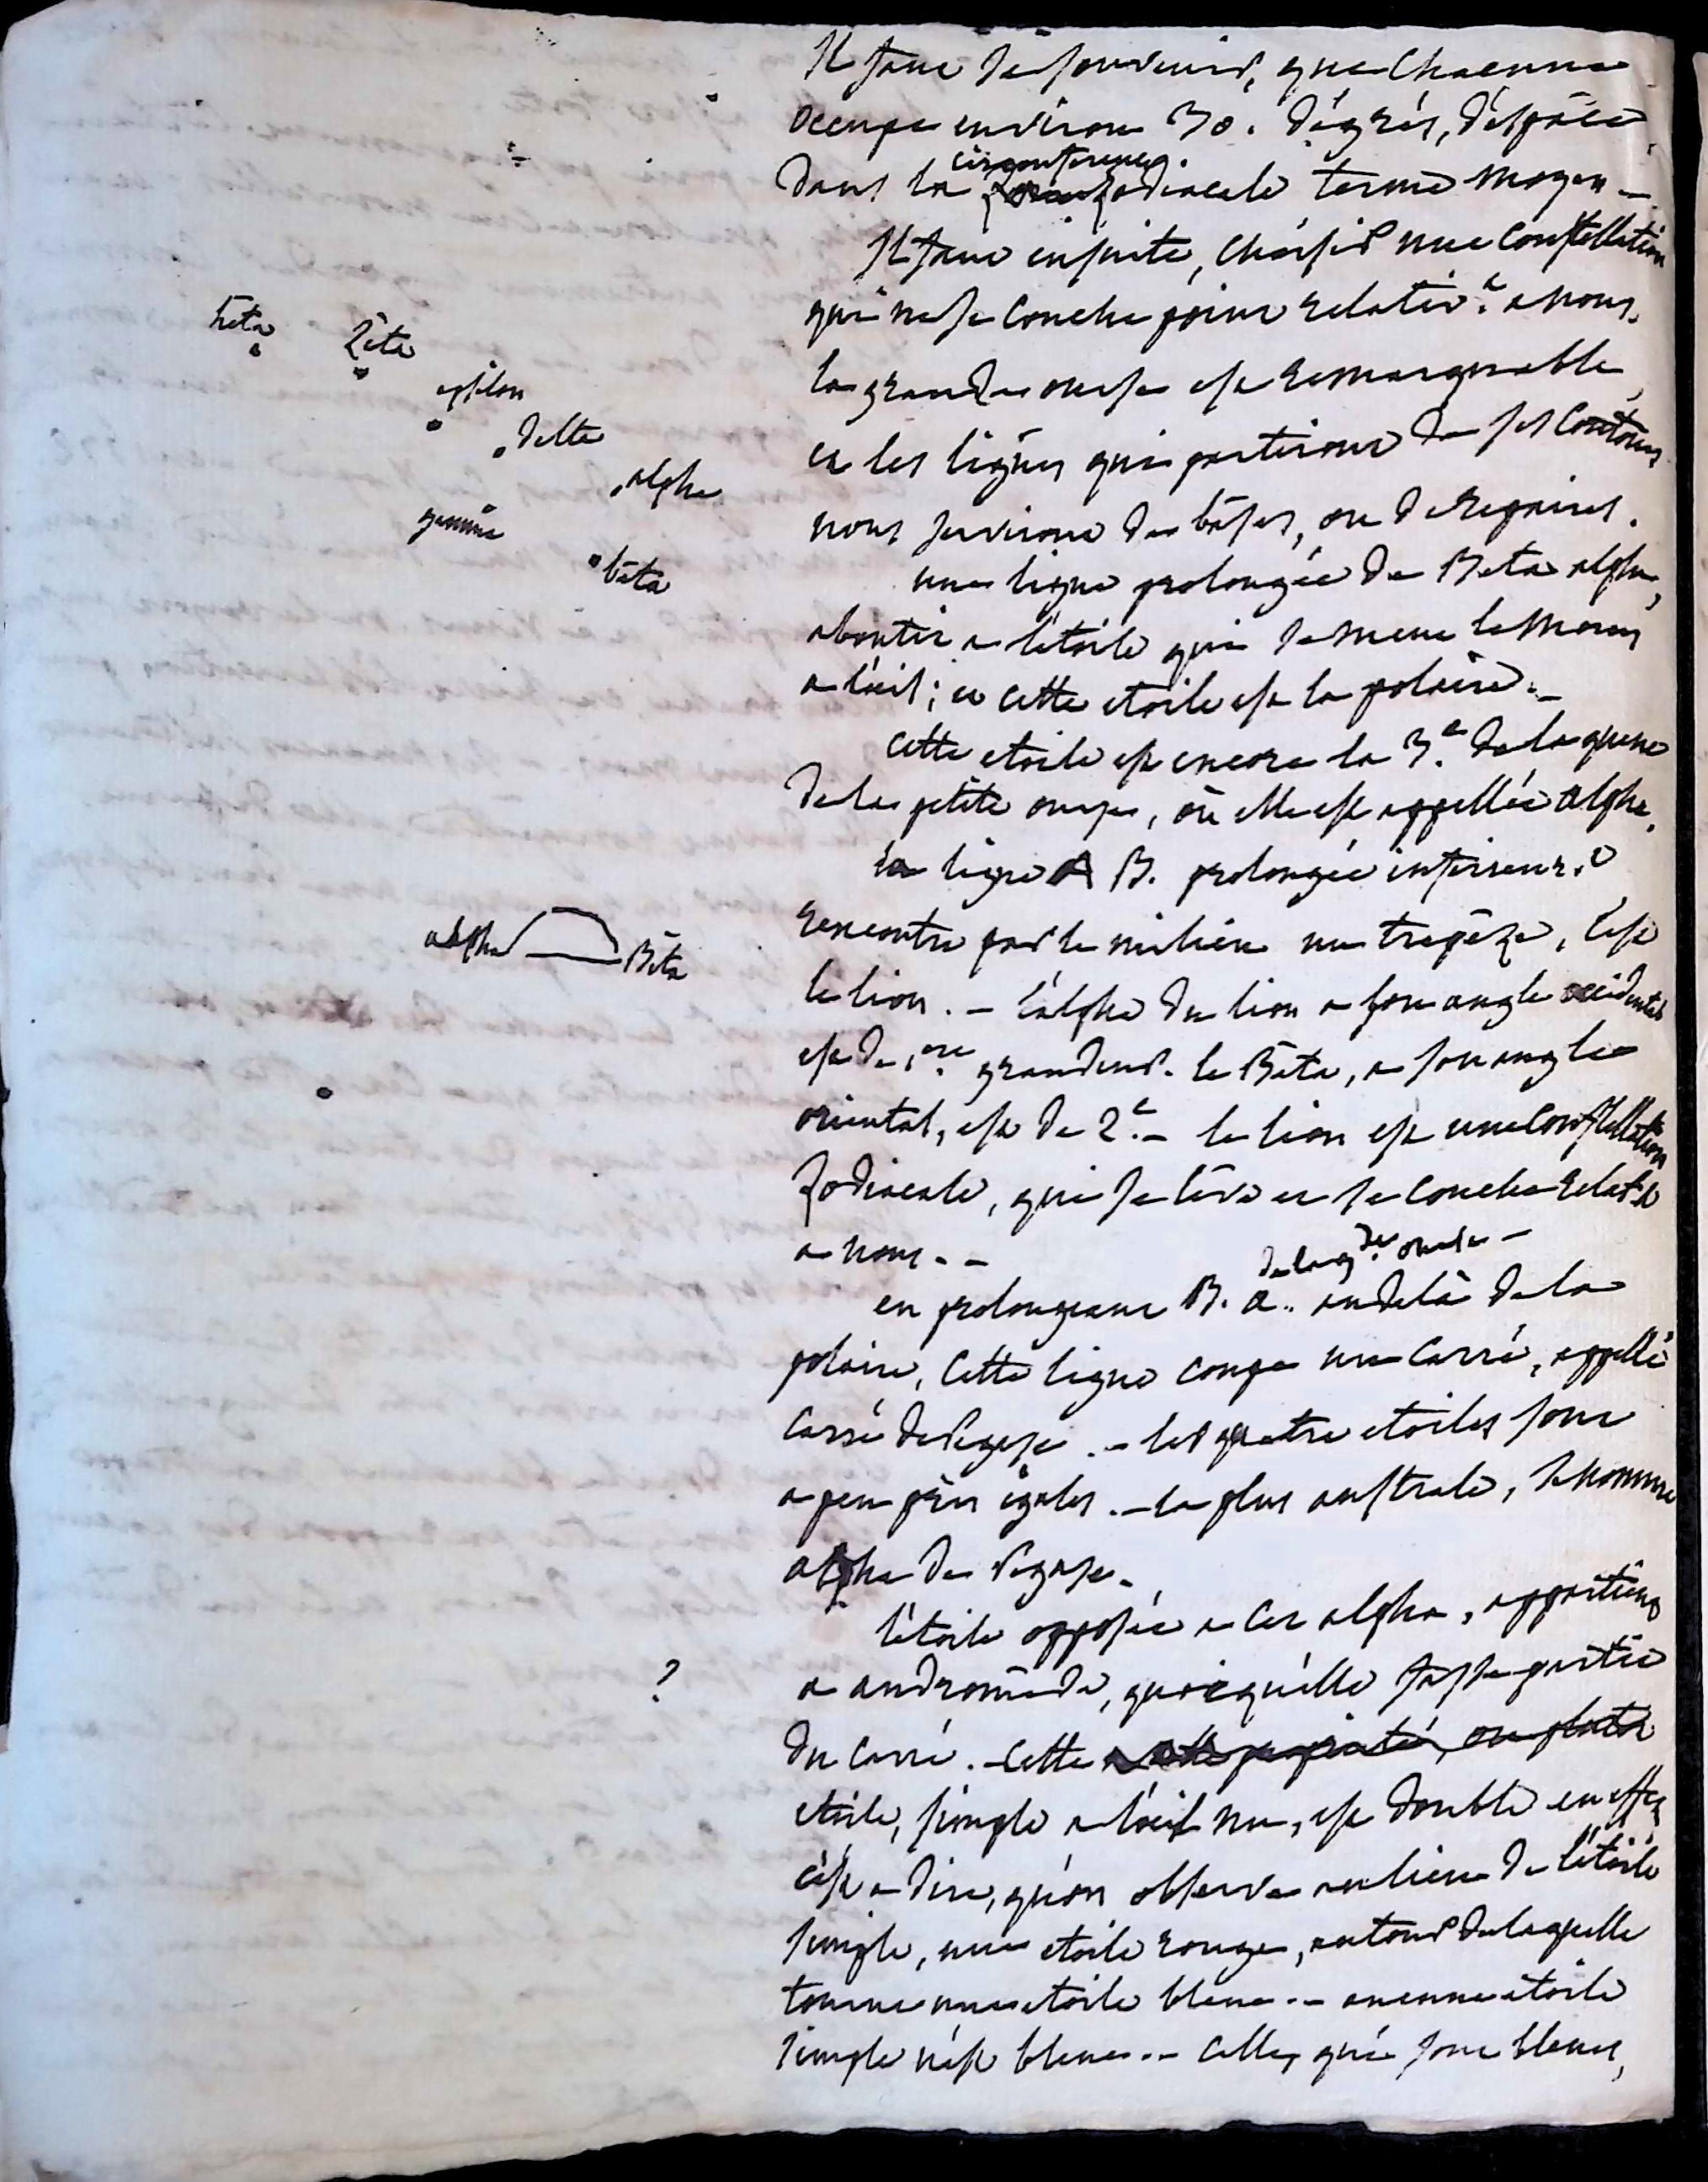 Il faut se souvenir, que chacune
occupe environ 30. dégrés, d'espace
dans la circonference. zodiacale terme moyen -
Il faut ensuite, choisir une constellation
qui ne se couche point relativ.t a nous.
la grande ourse est remarquable,
et les lignes qui partiront de ses contours
nous serviront de bases, ou de repaires.
une ligne prolongée de Beta alpha,
aboutit a l'étoile qui se meut le moins
a l'oeil; et cette etoile est la polaire. -
cette etoile est encore la 3.e de la queue
de la petite ourse, où elle est appellée alpha.
la ligne A B. prolongée inférieur.t
rencontre par le milieu un trapèze, c'est
le lion. - l'alpha du lion a son angle occidental
est de 1.ere grandeur. le Bêta, a son angle
oriental, est de 2.e - le lion est une constellation
zodiacale, qui se lève et se couche relat.t
a nous. -
de la g.de ourse -
en prolongeant B. a.. au delà de la
polaire, cette ligne coupe un carré, appellé
carré de Pegase. - les quatre etoiles sont
a peu près égales. - la plus australe, se nomme
alpha de Pegase.
l'étoile opposée a cet alpha, appartient
a andromède, quoiqu'elle fasse partie
du carré. - cette ou plutot
etoile, simple a l'oeil nu, est double en effet
c'est a dire, qu'on observe au lieu de l'étoile
simple, une etoile rouge, autour de laquelle
tourne une etoile bleue. - aucune etoile
simple n'est bleue. - celles qui sont bleues,
heta
Zéta
epsilon
delta
alpha
gamma
béta
alpha
Bêta
?